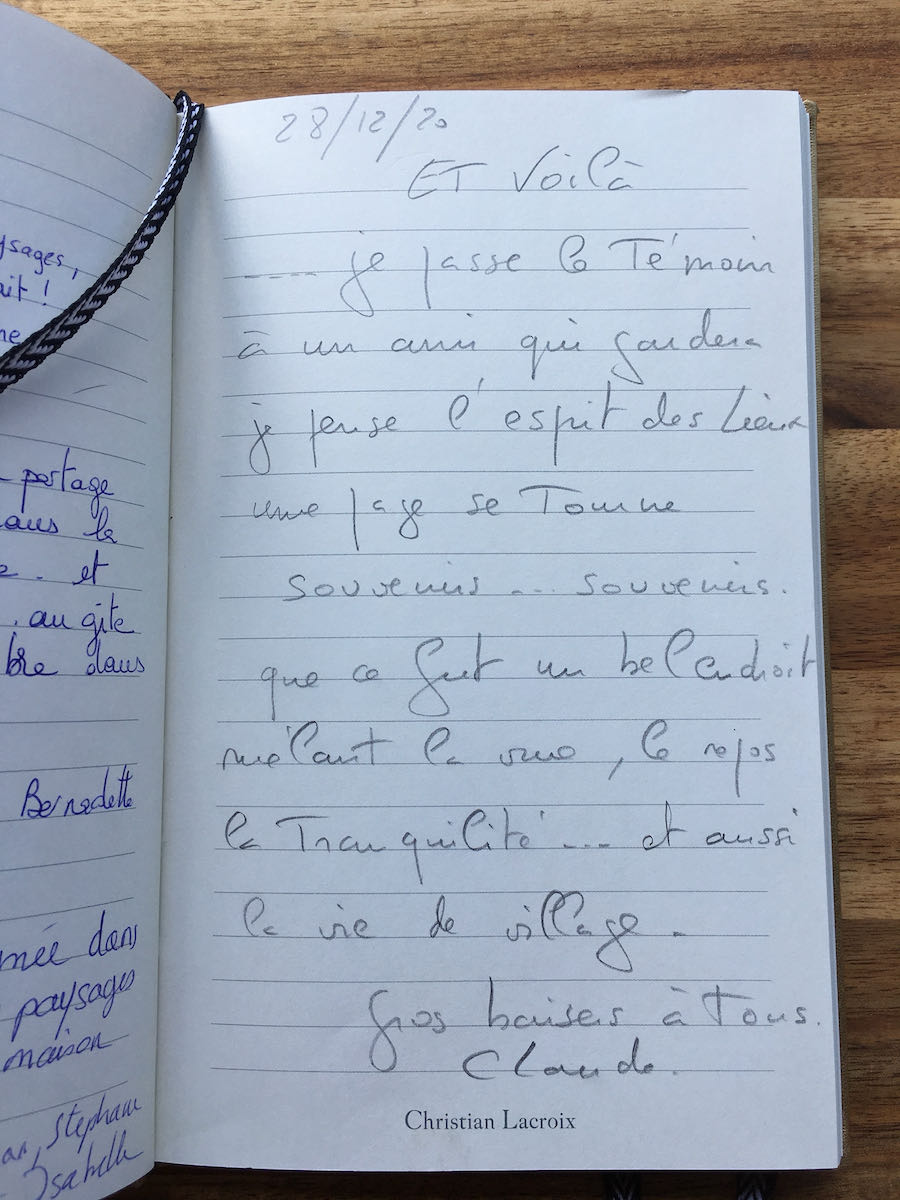 ysages,
ait !
ne
partage
dans la
et
. au gîte
bre dans
Bernadette
mée dans
paysages
maison
an, Stephane
Isabelle
28/12/20
ET Voilà
---- je passe le Témoin
à un ami qui gardera
je pense l'esprit des Lieux
une page se Tourne
souvenirs ... souvenirs.
que ce fut un bel endroit
mêlant la vue, le repos
la Tranquilité ... et aussi
la vie de village.
Gros baisers à Tous.
Claude.
Christian Lacroix